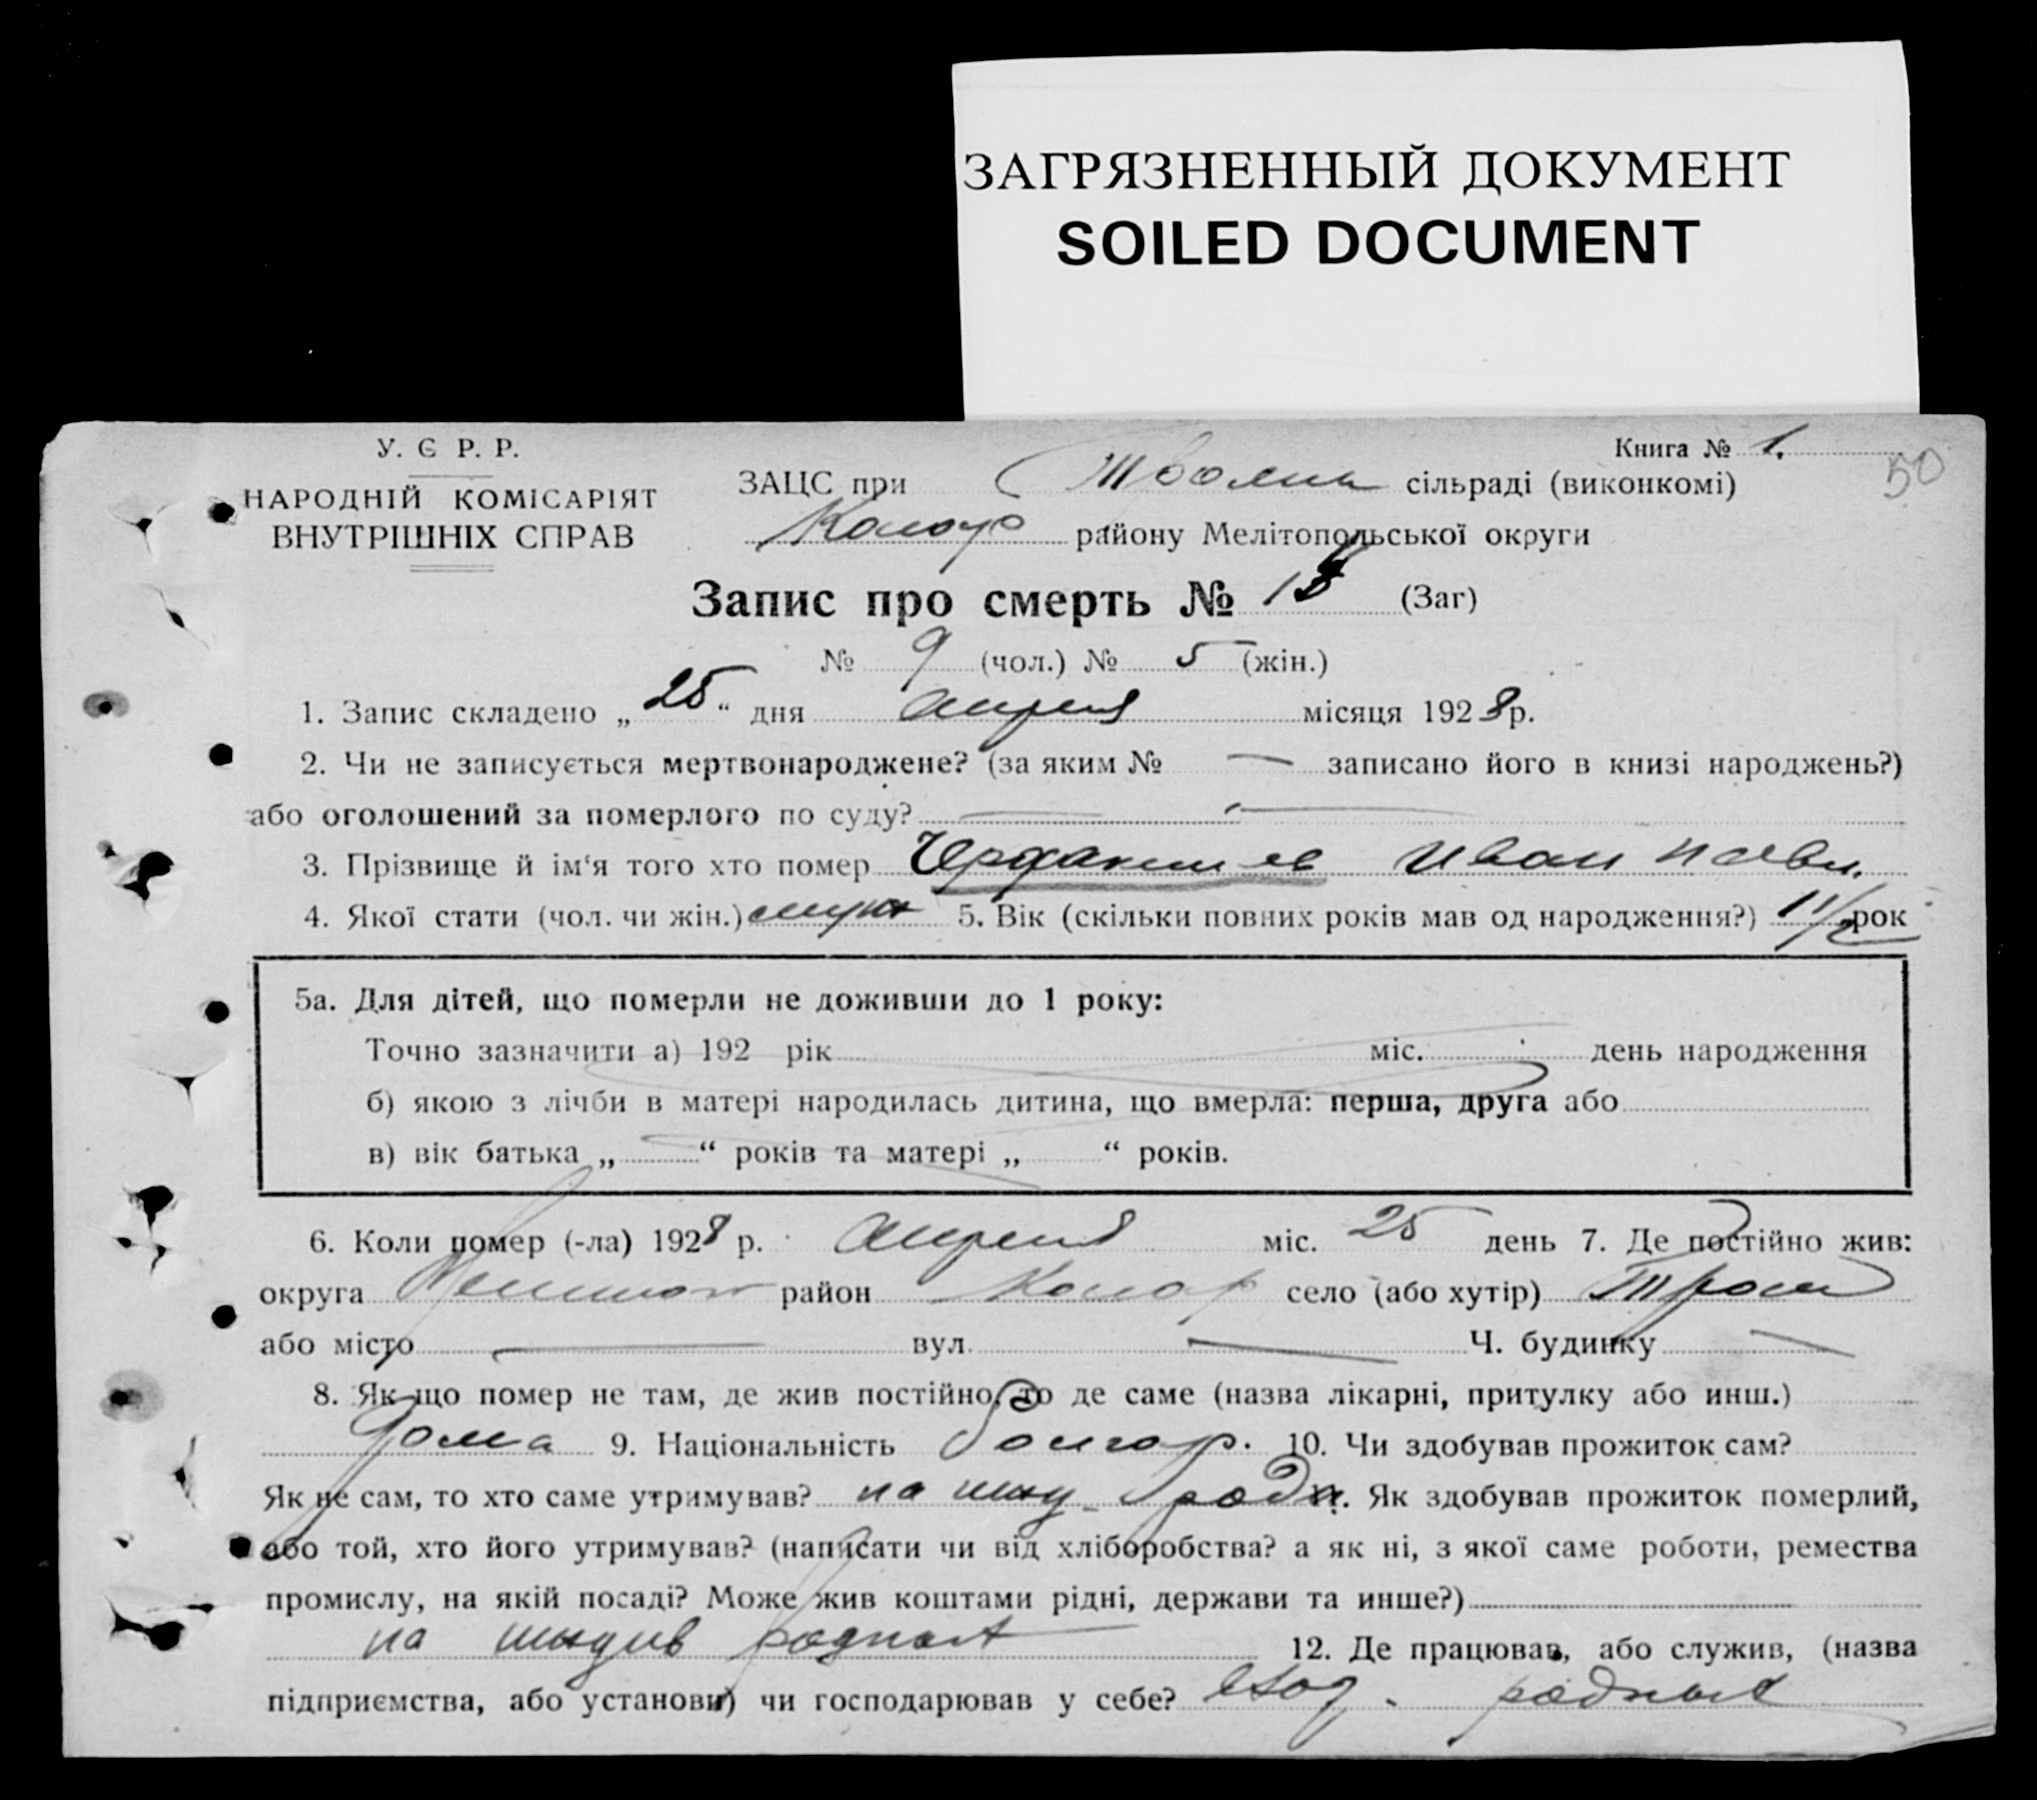 ЗАГРЯЗНЕННЫЙ ДОКУМЕНТ
SOILED DOCUMENT
У. С. Р. Р.
НАРОДНІЙ КОМІСАРІЯТ
ВНУТРІШНІХ СПРАВ
Книга № 1.
50
ЗАЦС при сільраді (виконкомі)
району Мелітопольської округи
Запис про смерть № (Заг)
№ 9 (чол.) № 5 (жін.)
1. Запис складено „25“ дня апреля місяця 1928 р.
2. Чи не записується мертвонароджене? (за яким № — записано його в книзі народжень?)
або оголошений за померлого по суду? —
3. Прізвище й ім‘я того хто помер Иван Павл.
4. Якої стати (чол. чи жін.) 5. Вік (скільки повних років мав од народження?) 1 1/2 рок
5а. Для дітей, що померли не доживши до 1 року:
Точно зазначити а) 192 рік міс. день народження
б) якою з лічби в матері народилась дитина, що вмерла: перша, друга або
в) вік батька „ “ років та матері „ “ років.
6. Коли помер (-ла) 1928 р. апреля міс. 25 день 7. Де постійно жив:
округа район село (або хутір)
або місто — вул. — Ч. будинку —
8. Як що помер не там, де жив постійно, то де саме (назва лікарні, притулку або инш.)
дома 9. Національність болгар. 10. Чи здобував прожиток сам?
Як не сам, то хто саме утримував? на ижд. родн. 11. Як здобував прожиток померлий,
або той, хто його утримував? (написати чи від хліборобства? а як ні, з якої саме роботи, ремества
промислу, на якій посаді? Може жив коштами рідні, держави та инше?)
на родных 12. Де працював, або служив, (назва
підприємства, або установи) чи господарював у себе? родных